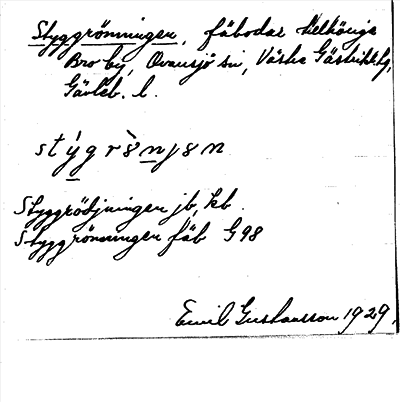 Styggrönningen, fäbodar tillhöriga
Bro by, Ovansjö sn, Västra Gästrikl. hd,
Gävleb. l.
stýgrȍnjən
Styggrödjningen jb, kb.
Styggrönningen fäb G98
Emil Gustausson 1929.